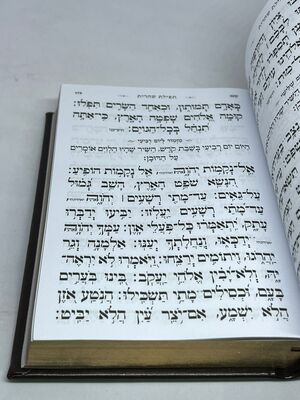 תפילת שחרית
כְּאָדָם תְּמוּתוּן, וּכְאַחַד הַשָּׂרִים תִּפֹּלוּ:
קוּמָה אֱלֹהִים שָׁפְטָה הָאָרֶץ, כִּי־אַתָּה
תִנְחַל בְּכָל־הַגּוֹיִם:
מזמור ליום רביעי
הַיּוֹם יוֹם רְבִיעִי בְּשַׁבַּת קֹדֶשׁ, הַשִּׁיר שֶׁהָיוּ הַלְוִיִּם אוֹמְרִים
עַל הַדּוּכָן:
אֵל־נְקָמוֹת יְהֹוָה, אֵל נְקָמוֹת הוֹפִיעַ:
הִנָּשֵׂא שֹׁפֵט הָאָרֶץ, הָשֵׁב גְּמוּל
עַל־גֵּאִים: עַד־מָתַי רְשָׁעִים יְהֹוָה
עַד־מָתַי רְשָׁעִים יַעֲלֹזוּ: יַבִּיעוּ יְדַבְּרוּ
עָתָק, יִתְאַמְּרוּ כָּל־פֹּעֲלֵי אָוֶן: עַמְּךָ יְהֹוָה
יְדַכְּאוּ, וְנַחֲלָתְךָ יְעַנּוּ: אַלְמָנָה וְגֵר
יַהֲרֹגוּ, וִיתוֹמִים יְרַצֵּחוּ: וַיֹּאמְרוּ לֹא יִרְאֶה־
יָּהּ, וְלֹא־יָבִין אֱלֹהֵי יַעֲקֹב: בִּינוּ בֹּעֲרִים
בָּעָם, וּכְסִילִים מָתַי תַּשְׂכִּילוּ: הֲנֹטַע אֹזֶן
הֲלֹא יִשְׁמָע, אִם־יֹצֵר עַיִן הֲלֹא יַבִּיט: